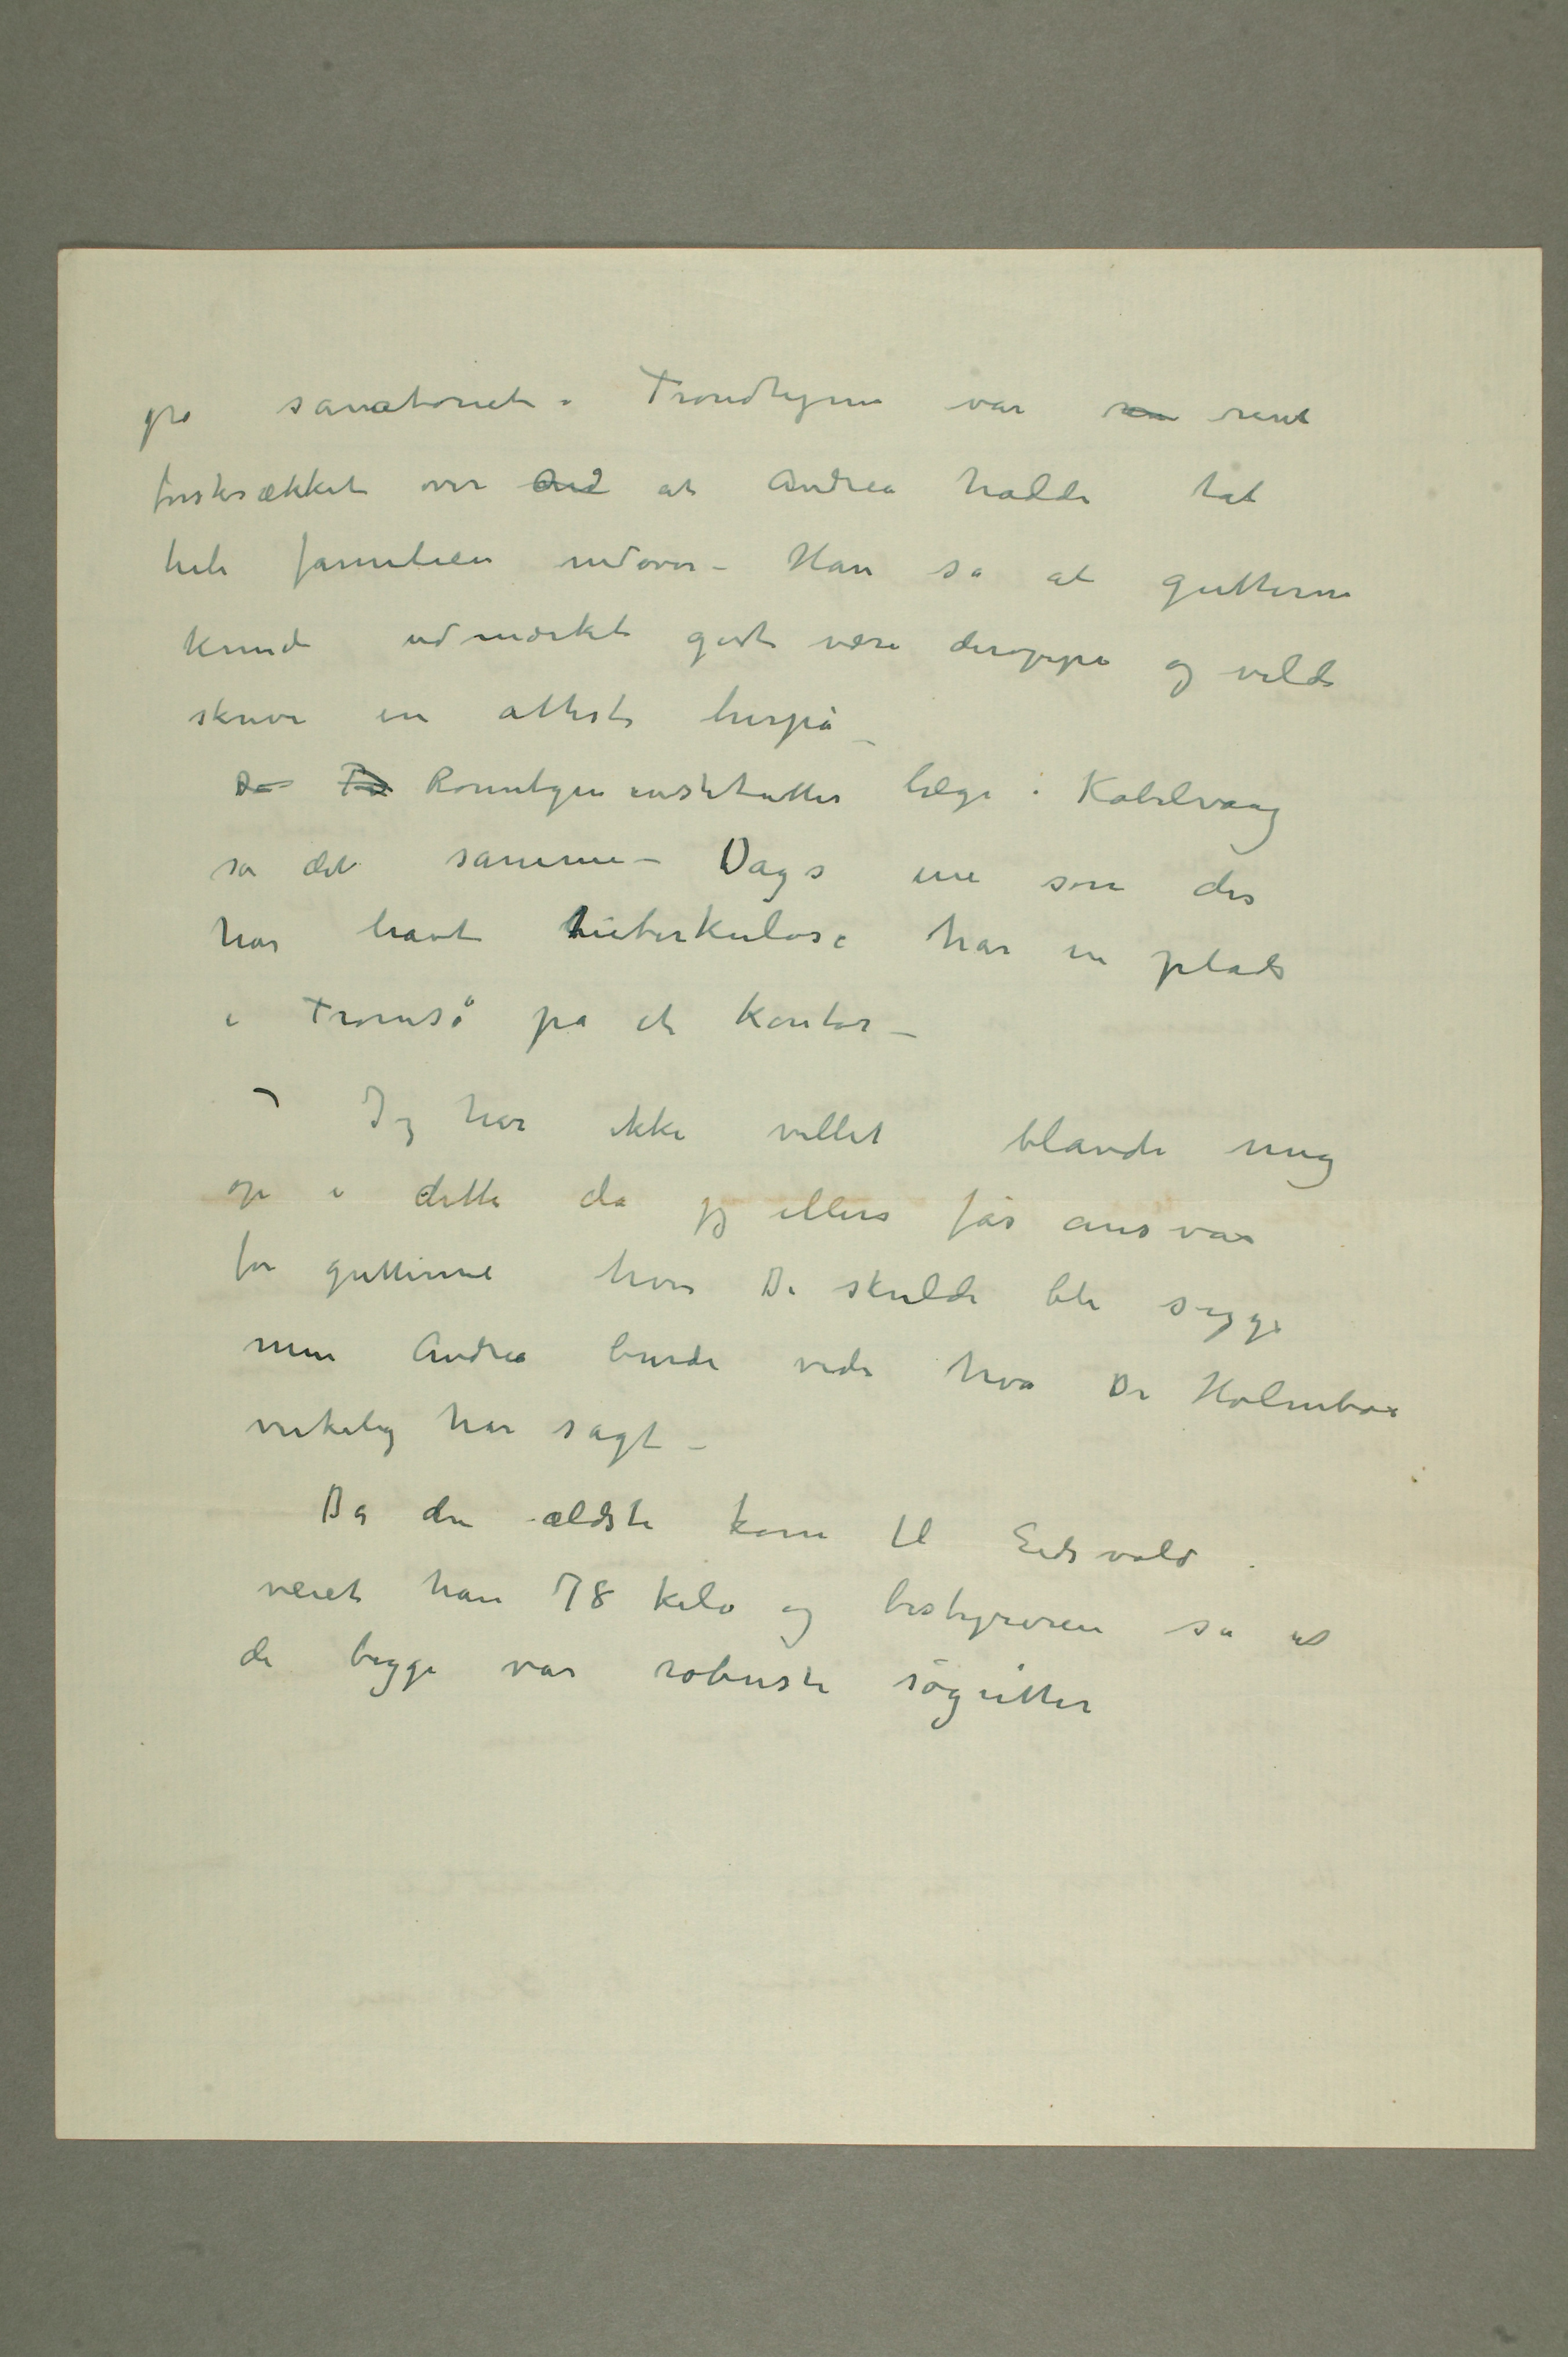 på sanatoriet i Trondhjem var ren rent
forskrækket over And at Andrea hadde tat
hele familien nedover – Han sa at gutterne
kunde udmærket godt være deroppe og vilde
skrive en attest herpå –
Da Rønntgeninstituttes læge i Kabelvaag
sa det samme – Dags ene som der
har havt tuberkulose har en plads
i Tromsø på et kontor –
– Jeg har ikke villet blande mig
op i dette da jeg ellers får ansvar
for gutterne hvis De skulde bli syge
men Andrea burde vide hva Dr Holmboe
virkelig har sagt –
Da den ældste kom til Eidsvold
veiet han 78 kilo og bestyreren sa at
de begge var robuste søgutter